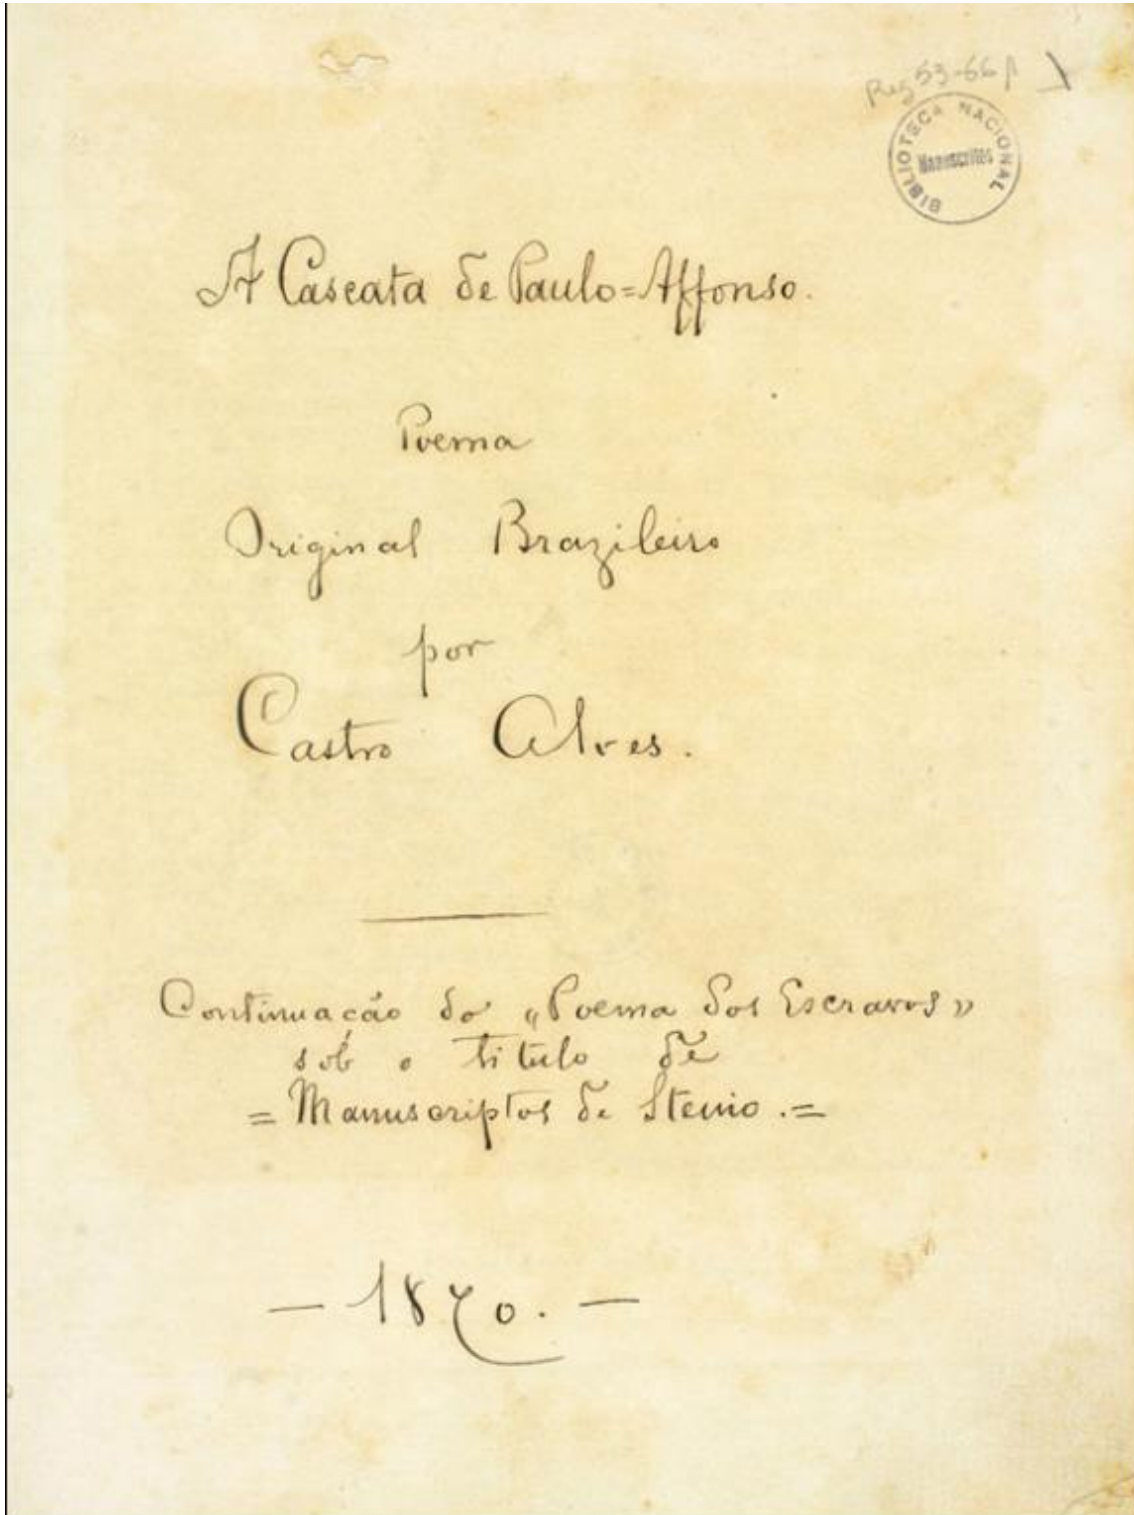 Reg 53-66
BIBLIOTECA NACIONAL
Manuscritos
A Cascata de Paulo=Affonso.
Poema
Original Brazileiro
por
Castro Alves.
Continuação do "Poema dos Escravos"
sób o titulo de
= Manuscriptos de Stenio.=
— 1870. —